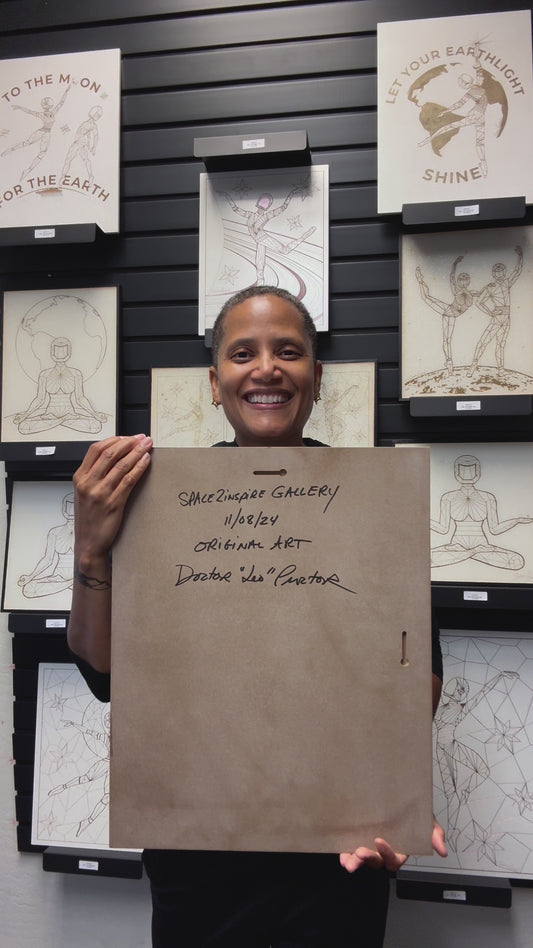 TO THE MOON
FOR THE EARTH
LET YOUR EARTHLIGHT
SHINE
SPACE2INSPIRE GALLERY
11/08/24
ORIGINAL ART